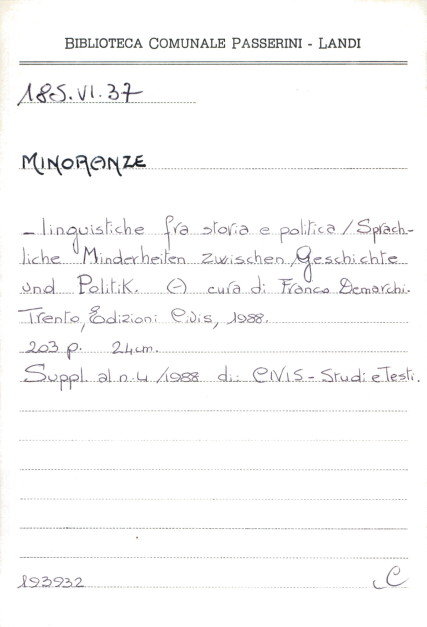 BIBLIOTECA COMUNALE PASSERINI - LANDI
185.VI.37
MINORANZE
- linguistiche fra storia e politica / Sprach-
liche Minderheiten zwischen Geschichte
und Politik. (-) cura di Franco Demarchi.
Trento, Edizioni Civis, 1988.
203 p. 24cm.
Suppl. al n. 4 /1988 di: CIVIS - Studi e Testi.
193932 C